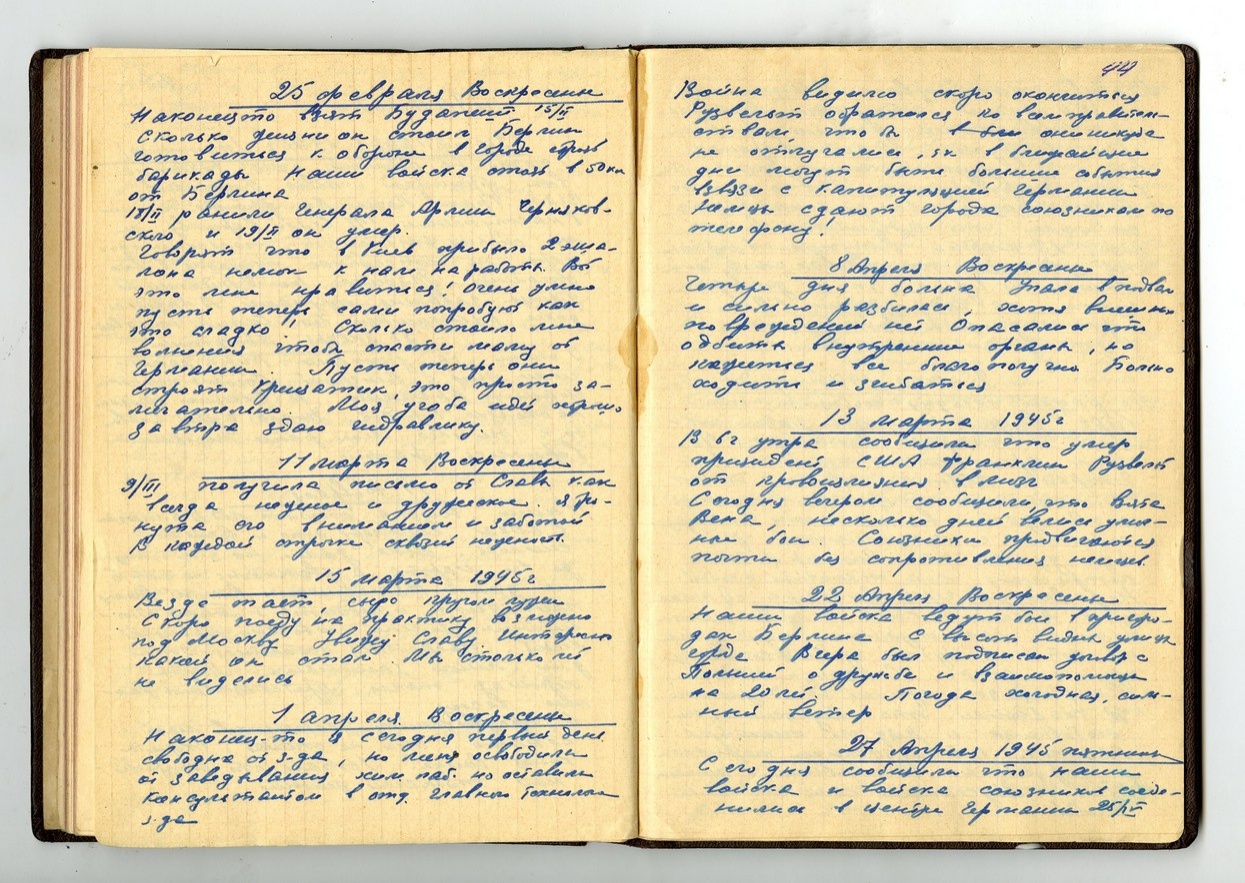 25 февраля Воскресенье
Наконецто взят Будапешт 15/II
Сколько жизни он стоил Берлин
готовиться к обороне в городе строят
барикады Наши войска стоят в 50 км
от Берлина
18/II ранили Генерала Армии Черняхов-
ского и 19/II он умер.
Говорят что в Киев прибыло 2 эша-
лона немок к нам на работы. Вот
это мне нравиться! Очень умно
пусть теперь сами попробуют как
это сладко! Сколько стоило мне
волнения чтобы спасти маму от
Германии. Пусть теперь они
строят Крищатик, это просто за-
мичательно. Моя учоба идет хорошо
завтра здаю гидравлику.
11 марта Воскресенье
9/III получила письмо от Славы как
всегда нежное и дружеское. Я
его вниманием и заботой
В каждой строчке сквозит нежность.
15 марта 1945 г
Везде тает, сыро кругом лужи
Скоро поеду на практику возможно
под Москву Увижу Славу Интересно
какой он стал. Мы столько лет
не виделись
1 апреля Воскресенье
Наконец-то я сегодня первый день
свободна от з-да, но меня освободили
от заведывания хим. лаб. но оставили
консультантом в отд. главного технолога
з-да
44
Война видимо скоро окончиться
Рузвельт обратился ко всем правитель-
ствам, что бы они никуда
не отлучались, т.к в ближайшие
дни могут быть большие события
взвязи с капитуляцией Германии
Немцы сдают города союзникам по
телефону!
8 Апреля Воскресенье
Четыре дня больна Упала в подвал
и сильно разбилась, хотя внешних
повреждений нет Опасались что
отбиты внутренние органы, но
кажеться все благополучно Больно
ходить и згибаться
13 марта 1945 г
В 6 г утра сообщили что умер
призидент США Франклин Рузвельт
от кровоизлияния в мозг
Сегодня вечером сообщили, что взята
Вена, несколько дней велись улич-
ные бои. Союзники продвигаются
почти без сопротивления немцев.
22 Апреля Воскресенье
Наши войска ведут бои в пригоро-
дах Берлина С высот видны улицы
города Вчера был подписан договор с
Польшей о дружбе и взаимопомощи
на 20 лет. Погода холодная, силь-
ный ветер
27 Апреля 1945 пятница
Сегодня сообщили что наши
войска и войска союзников соеде-
нились в центре Германии 25/IV